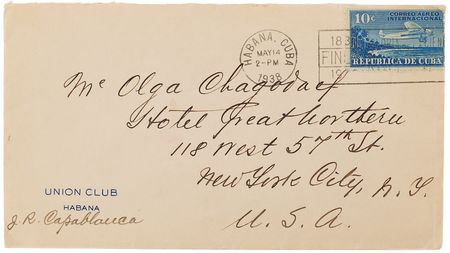 HABANA, CUBA
MAY 14
2-PM
1938
CORREO AEREO
INTERNACIONAL
10c
REPUBLICA DE CUBA
183
FIN
Me Olga Chagodaef
Hotel Great Northern
118 West 57th St.
New York City, N. Y.
U. S. A.
UNION CLUB
HABANA
J. R. Capablanca